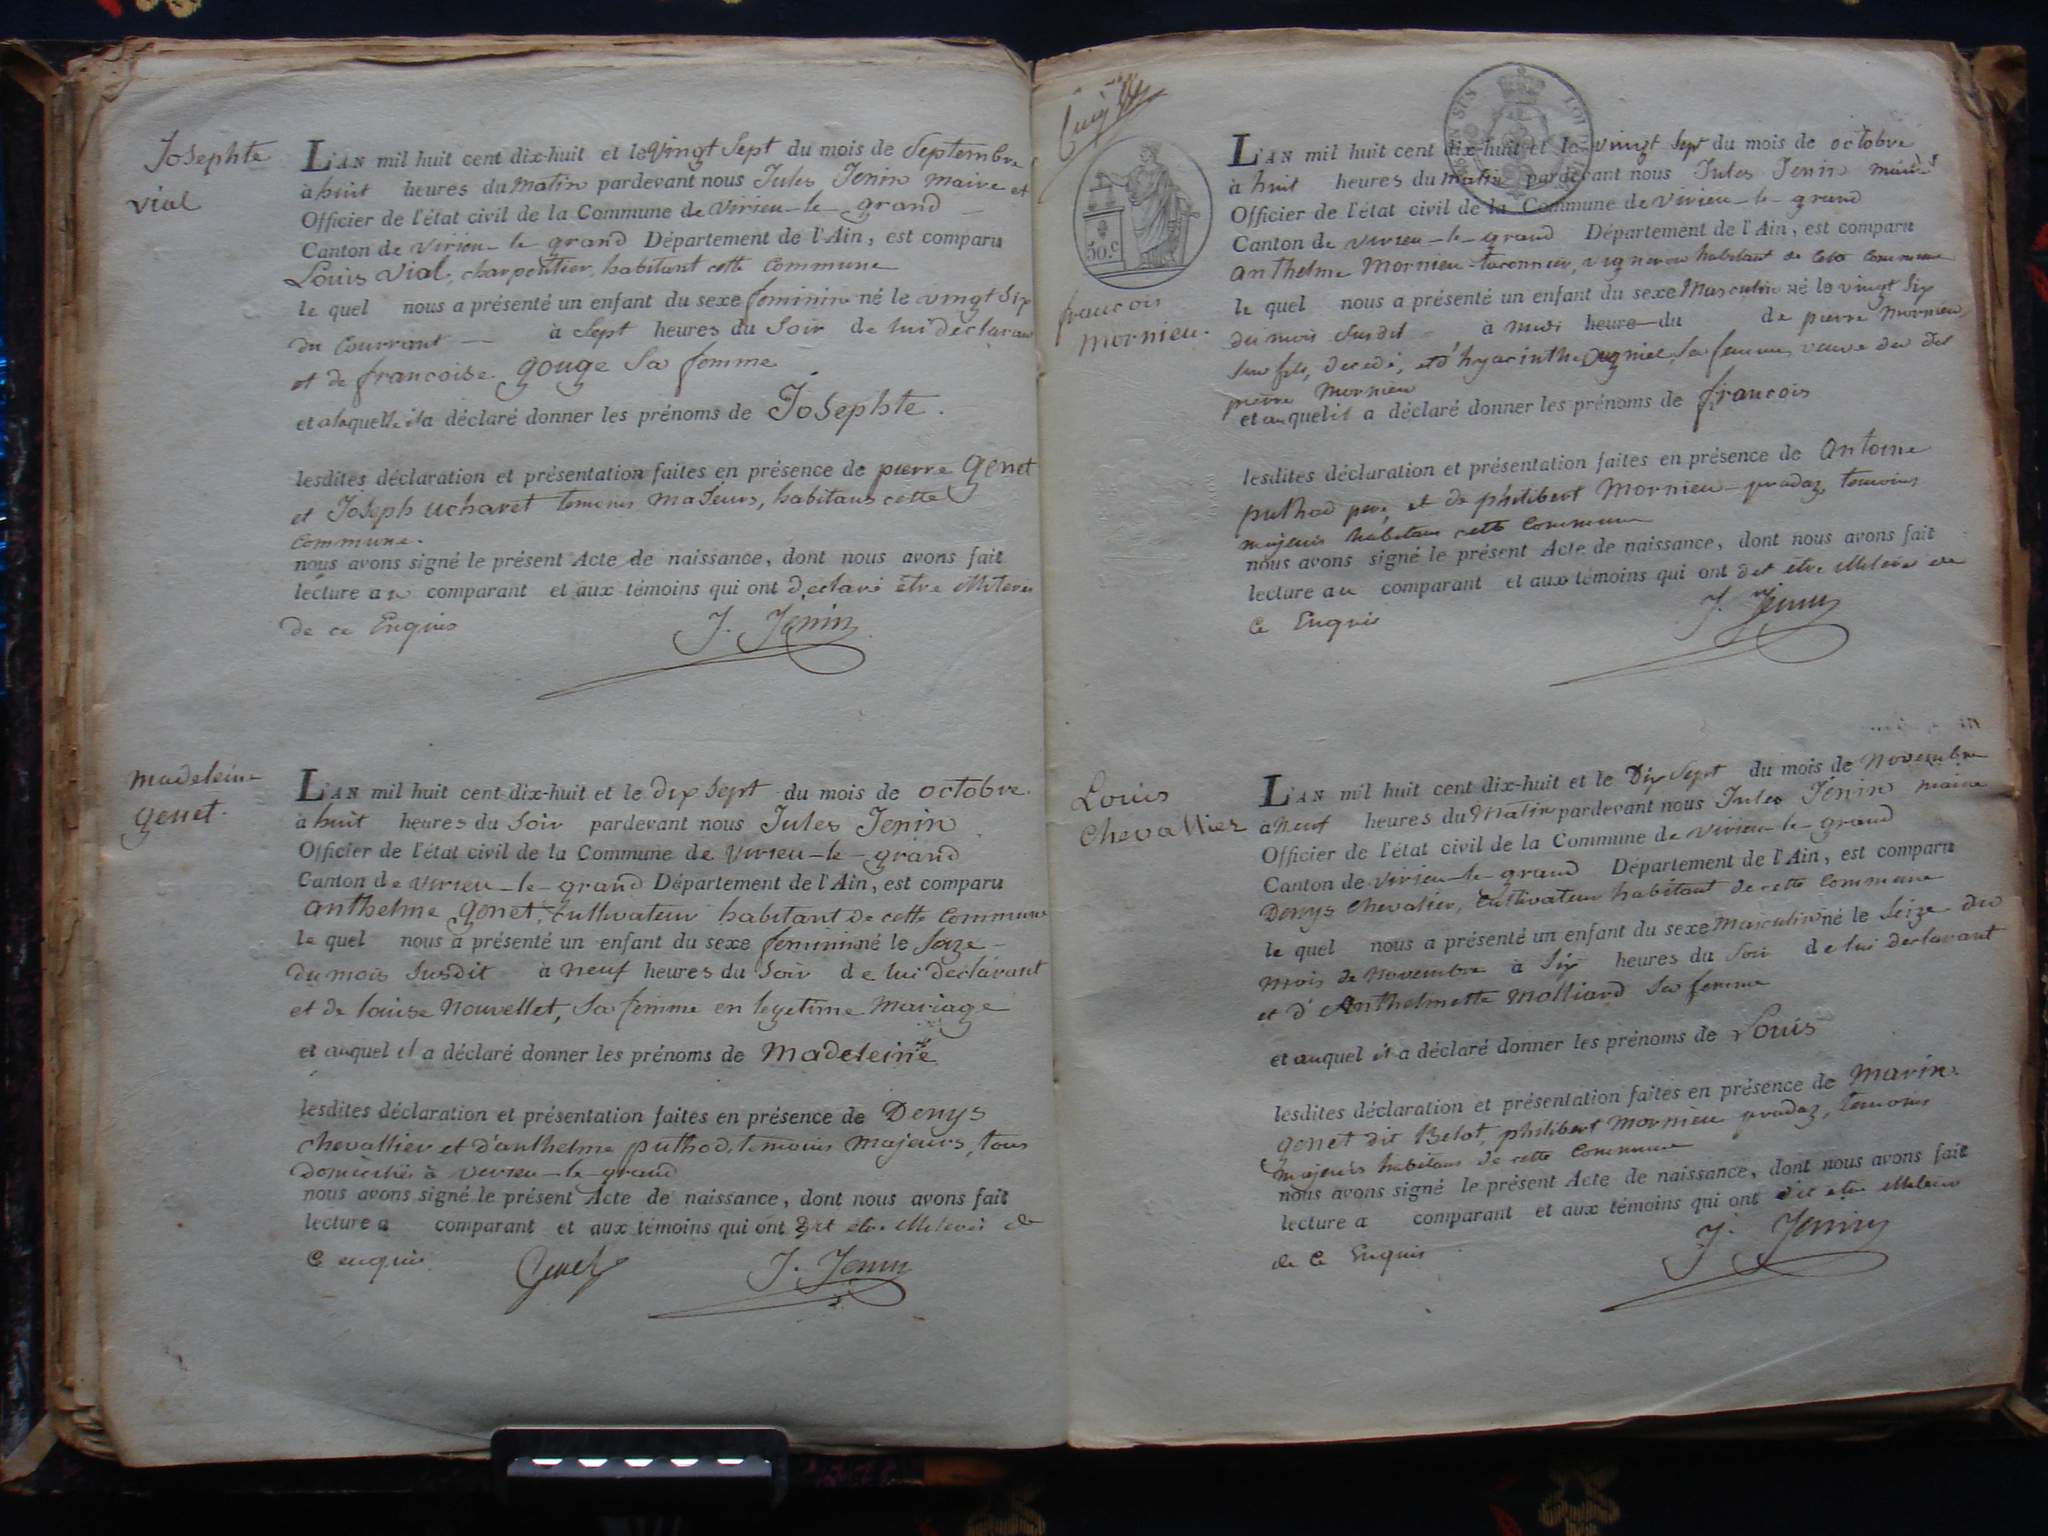 Josephte
vial
L'AN mil huit cent dix-huit et le vingt Sept du mois de Septembre
à huit heures du matin pardevant nous Jules Jenin maire et
Officier de l'état civil de la Commune de Virieu-le-grand
Canton de virieu-le-grand Département de l'Ain, est comparu
Louis Vial, charpentier, habitant cette Commune
le quel nous a présenté un enfant du sexe feminin né le vingt Six
du Courrant à Sept heures du Soir de lui déclarant
et de francoise gouge Sa femme
et a laquelle il a déclaré donner les prénoms de Josephte.
lesdites déclaration et présentation faites en présence de pierre genet
et Joseph ucharet temoins majeurs, habitans cette
Commune.
nous avons signé le présent Acte de naissance, dont nous avons fait
lecture au comparant et aux témoins qui ont déclaré être illiteres
de ce Enquis J. Jenin
madeleine
genet.
L'AN mil huit cent dix-huit et le dix Sept du mois de octobre.
à huit heures du Soir pardevant nous Jules Jenin
Officier de l'état civil de la Commune de Virieu-le-grand
Canton de virieu-le-grand Département de l'Ain, est comparu
anthelme genet, Cultivateur habitant de cette Commune
le quel nous a présenté un enfant du sexe feminin né le Saze
du mois Susdit à neuf heures du Soir de lui déclarant
et de louise Nouvellet, Sa femme en legetime Mariage
et auquel il a déclaré donner les prénoms de Madeleine
lesdites déclaration et présentation faites en présence de Denys
chevallier et d'anthelme puthod, temoins majeurs, tous
domiciliés à virieu-le-grand
nous avons signé le présent Acte de naissance, dont nous avons fait
lecture a comparant et aux témoins qui ont dit être illiteres de
Ce enquis. Genet J. Jenin
50.c
françois
mornieu.
L'AN mil huit cent dix-huit et le vingt Sept du mois de octobre
à huit heures du matin pardevant nous Jules Jenin maire
Officier de l'état civil de la Commune de virieu-le-grand
Canton de virieu-le-grand Département de l'Ain, est comparu
anthelme Mornieu-taconnier, vigneron habitant de Cette Commune
le quel nous a présenté un enfant du sexe Masculin né le vingt Six
du mois Susdit à midi heure du de pierre Mornieu
Son fils, decedé, et d'hyacinthe Sa femme veuve du dit
pierre Mornieu
et auquel il a déclaré donner les prénoms de françois
lesdites déclaration et présentation faites en présence de Antoine
puthod pere, et de philibert Mornieu-pradaz, temoins
majeurs habitans cette Commune
nous avons signé le présent Acte de naissance, dont nous avons fait
lecture au comparant et aux témoins qui ont dit être illiteres de
Ce Enquis J. Jenin
Louis
Chevallier
L'AN mil huit cent dix-huit et le Dix Sept du mois de Novembre
à neuf heures du Matin pardevant nous Jules Jenin maire
Officier de l'état civil de la Commune de virieu-le-grand
Canton de virieu-le-grand Département de l'Ain, est comparu
Denys Chevalier, Cultivateur habitant de cette Commune
le quel nous a présenté un enfant du sexe Masculin né le Seize du
mois de Novembre à Six heures du Soir de lui déclarant
et d'Anthelmette Molliard Sa femme
et auquel il a déclaré donner les prénoms de Louis
lesdites déclaration et présentation faites en présence de Marin
genet dit Belot, philibert Mornieu pradaz, temoins
majeurs habitans de cette Commune
nous avons signé le présent Acte de naissance, dont nous avons fait
lecture a comparant et aux témoins qui ont dit être illiteres
de Ce Enquis J. Jenin